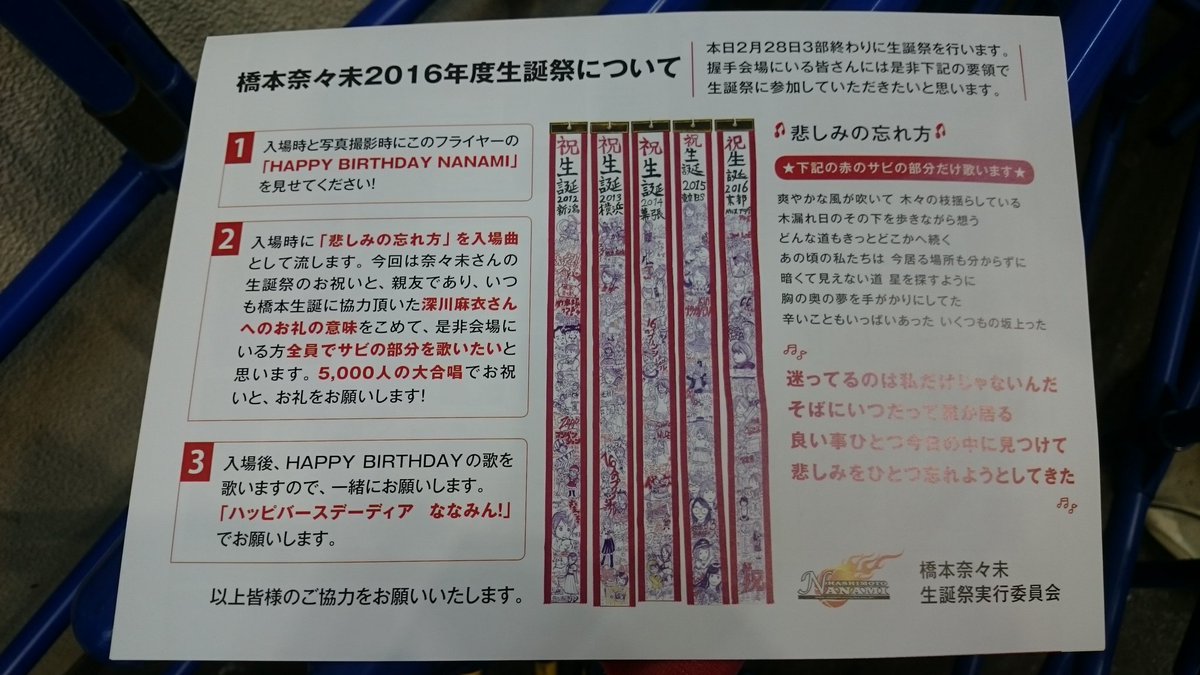 橋本奈々未2016年度生誕祭について
本日2月28日3部終わりに生誕祭を行います。
握手会場にいる皆さんには是非下記の要領で
生誕祭に参加していただきたいと思います。
1
入場時と写真撮影時にこのフライヤーの
「HAPPY BIRTHDAY NANAMI」
を見せてください!
2
入場時に「悲しみの忘れ方」を入場曲
として流します。今回は奈々未さんの
生誕祭のお祝いと、親友であり、いつ
も橋本生誕に協力頂いた深川麻衣さん
へのお礼の意味をこめて、是非会場に
いる方全員でサビの部分を歌いたいと
思います。5,000人の大合唱でお祝
いと、お礼をお願いします!
3
入場後、HAPPY BIRTHDAYの歌を
歌いますので、一緒にお願いします。
「ハッピバースデーディア ななみん!」
でお願いします。
以上皆様のご協力をお願いいたします。
祝生誕2012新潟
祝生誕2013横浜
祝生誕2014幕張
祝生誕2015
祝生誕2016京都
祝
悲しみの忘れ方
★下記の赤のサビの部分だけ歌います★
爽やかな風が吹いて 木々の枝揺らしている
木漏れ日のその下を歩きながら想う
どんな道もきっとどこかへ続く
あの頃の私たちは 今居る場所も分からずに
暗くて見えない道 星を探すように
胸の奥の夢を手がかりにしてた
辛いこともいっぱいあった いくつもの坂上った
迷ってるのは私だけじゃないんだ
そばにいつだって誰か居る
良い事ひとつ今日の中に見つけて
悲しみをひとつ忘れようとしてきた
HASHIMOTO
NANAMI
橋本奈々未
生誕祭実行委員会